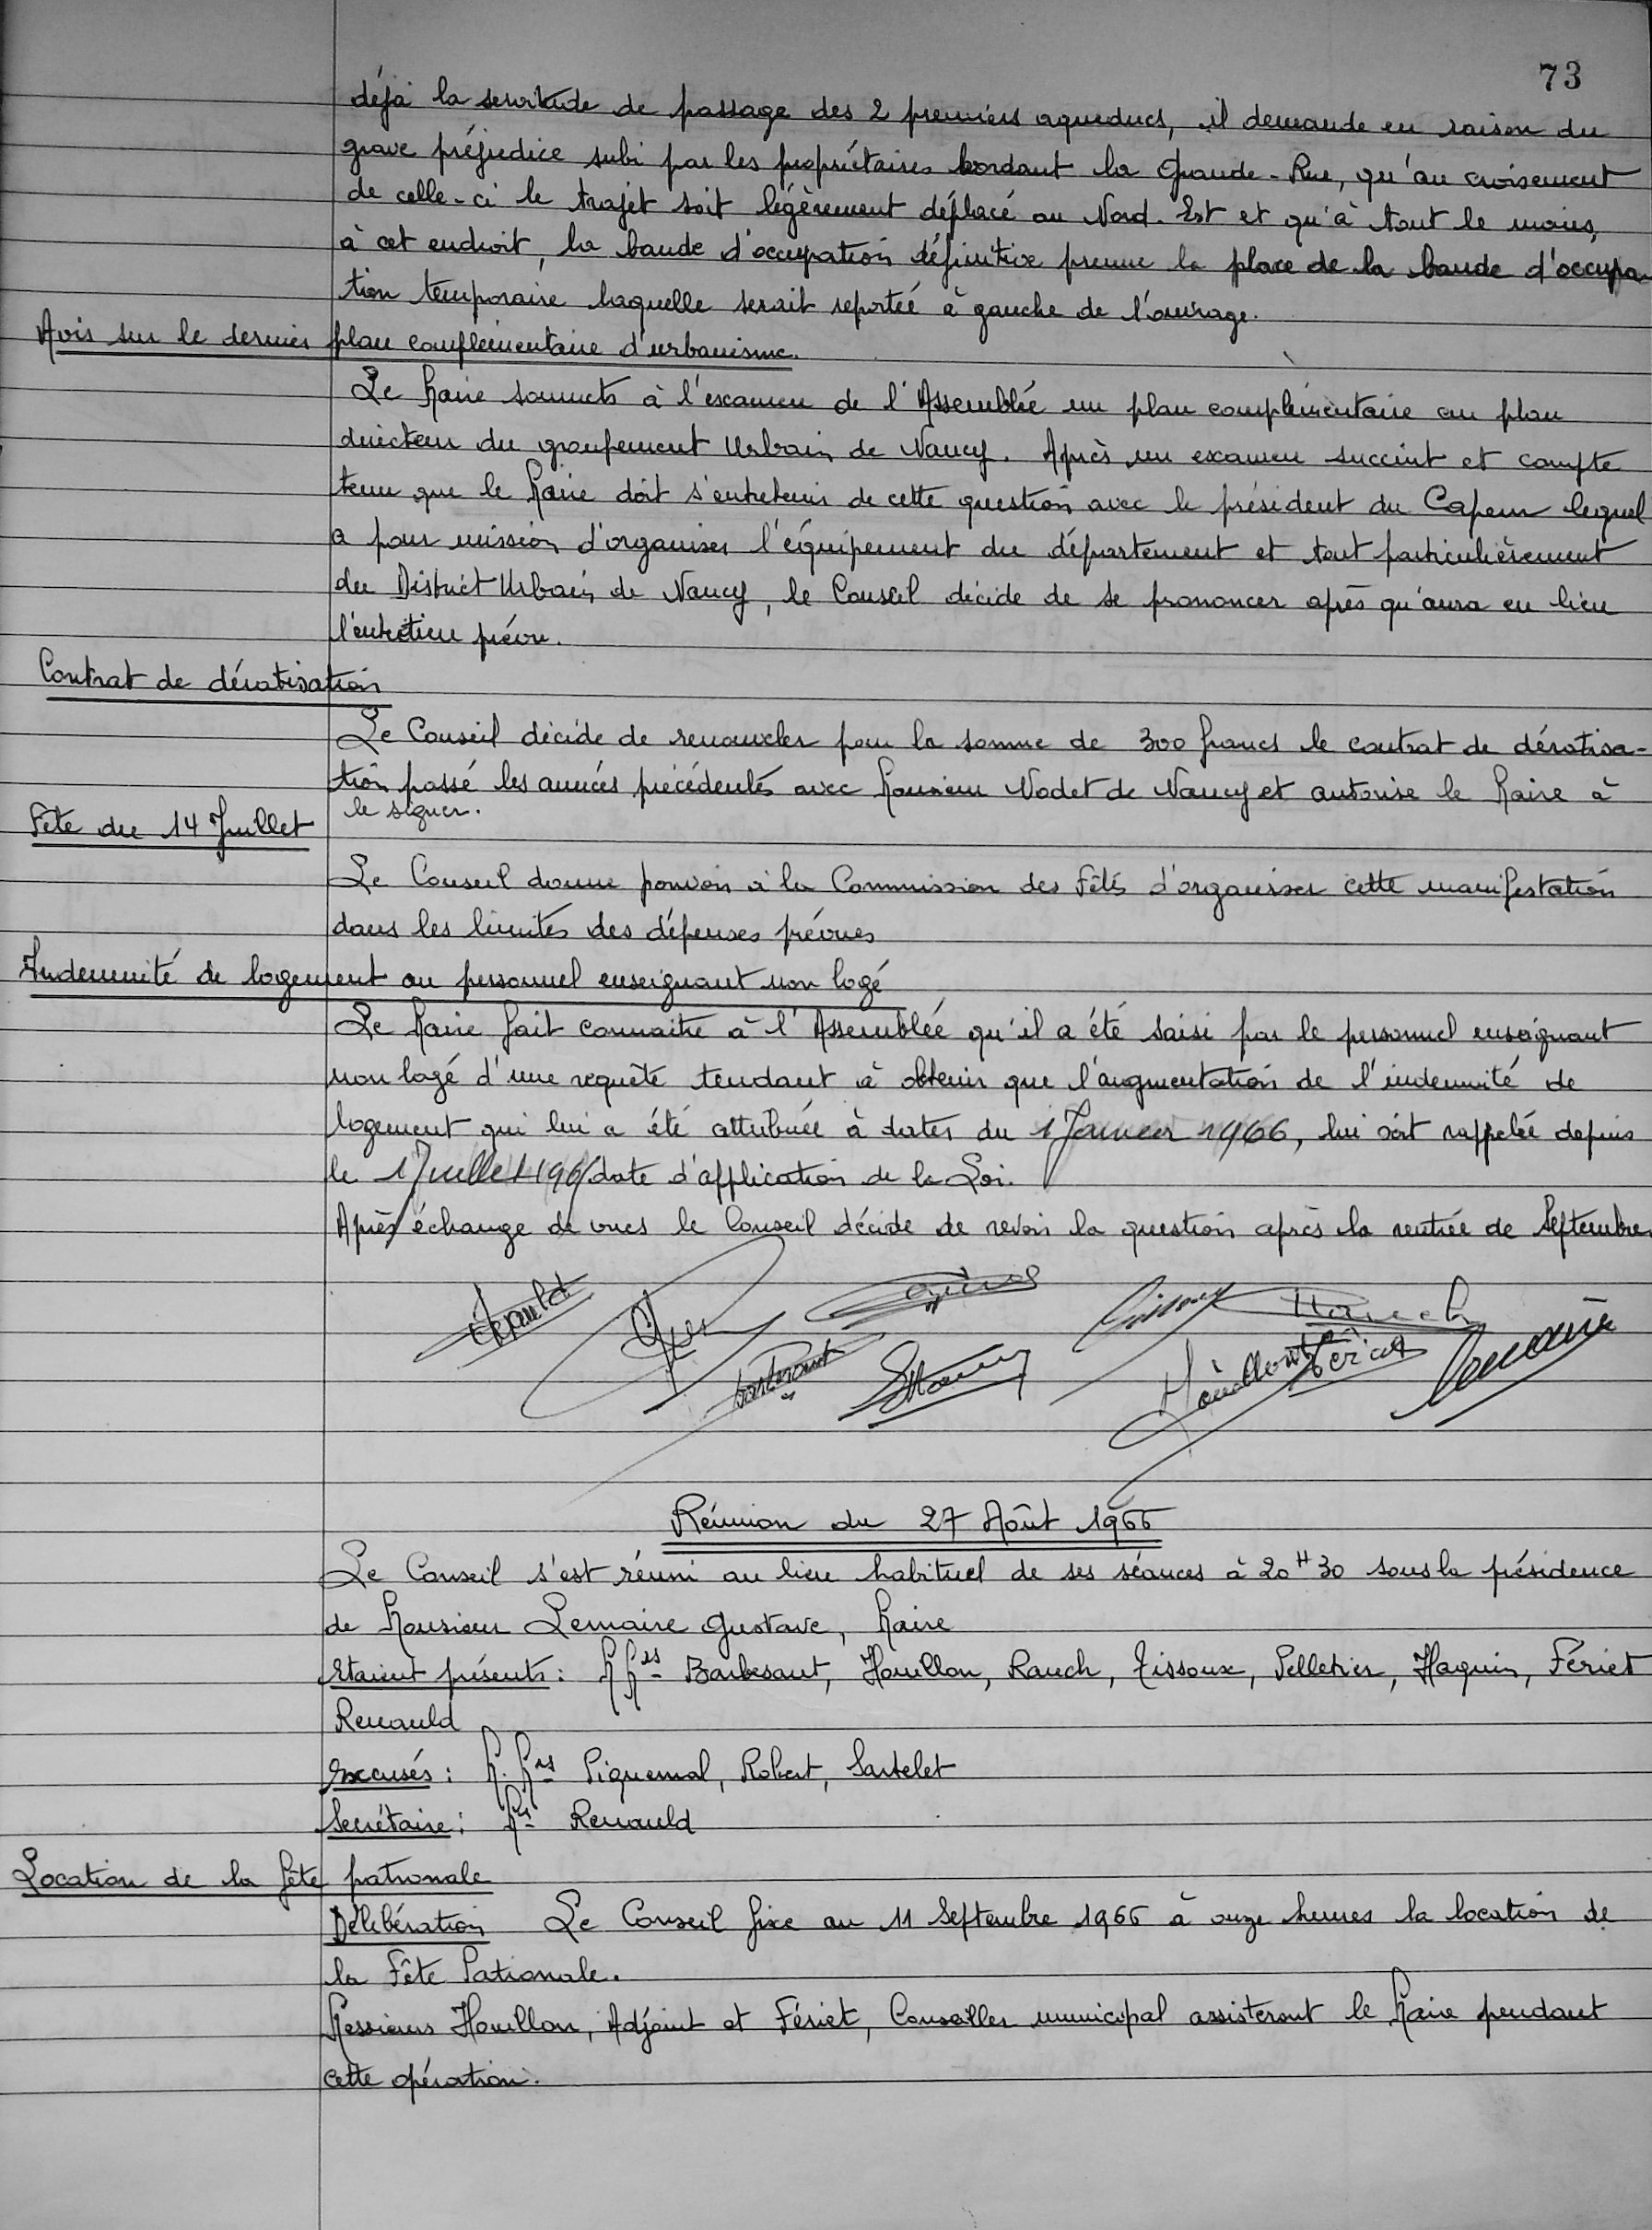 73
déja la servitude de passage des 2 premiers aqueducs, il demande en raison du
grave préjudice subi par les propriétaires bordant la Grande-Rue, qu'au croisement
de celle-ci le trajet soit légèrement déplacé au Nord-Est et qu'à tout le moins,
à cet endroit, la bande d'occupation définitive prenne la place de la bande d'occupa-
tion temporaire laquelle serait reportée à gauche de l'ouvrage.
Avis sur le dernier plan complémentaire d'urbanisme.
Le Maire soumets à l'examen de l'Assemblée un plan complémentaire au plan
directeur du groupement Urbain de Nancy. Après un examen succint et compte
tenu que le Maire doit s'entretenir de cette question avec le président du Capem lequel
a pour mission d'organiser l'équipement du département et tout particulièrement
du District Urbain de Nancy, le Conseil décide de se prononcer après qu'aura eu lieu
l'entretien prévu.
Contrat de dératisation
Le Conseil décide de renouveler pour la somme de 300 francs le contrat de dératisa-
tion passé les années précédentes avec Monsieur Nodet de Nancy et autorise le Maire à
le signer.
Fête du 14 Juillet
Le Conseil donne pouvoir à la Commission des Fêtes d'organiser cette manifestation
dans les limites des dépenses prévues
Indemnité de logement au personnel enseignant non logé
Le Maire fait connaitre à l'Assemblée qu'il a été saisi par le personnel enseignant
non logé d'une requête tendant à obtenir que l'augmentation de l'indemnité de
logement qui lui a été attribuée à dater du 1 Janvier 1966, lui soit rappelée depuis
le 1 Juillet 196 date d'application de la Loi.
Après échange de vues le Conseil décide de revoir la question après la rentrée de Septembre
Rauch
Houillon Fériet Lemaire
Réunion du 27 Août 1966
Le Conseil s'est réuni au lieu habituel de ses séances à 20H30 sous la présidence
de Monsieur Lemaire Gustave, Maire
Etaient présents: MMrs Barbesant, Houillon, Rauch, Tissoux, Pelletier, Haquin, Fériet
Renauld
Excusés: M.Mrs Piquemal, Robert, Sartelet
Secrétaire: Mr Renauld
Location de la fête patronale
Délibération Le Conseil fixe au 11 Septembre 1966 à onze heures la location de
la Fête Patronale.
Messieurs Houillon, Adjoint et Fériet, Conseiller municipal assisteront le Maire pendant
cette opération.